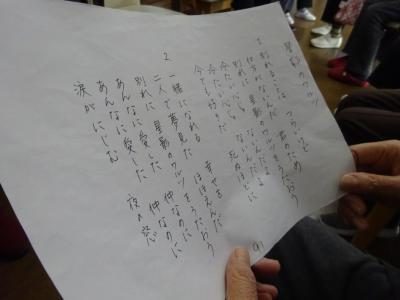 星影のワルツ
1
別れることは つらいけど
仕方がないんだ 君のため
別れに 星影のワルツをうたおう
冷たい心じゃ ないんだよ
冷たい心じゃ ないんだよ
今でも好きだ 死ぬほどに
2
一緒になれる 幸せを
二人で夢見た ほほえんだ
別れに 星影のワルツをうたおう
あんなに愛した 仲なのに
あんなに愛した 仲なのに
涙がにじむ 夜の窓